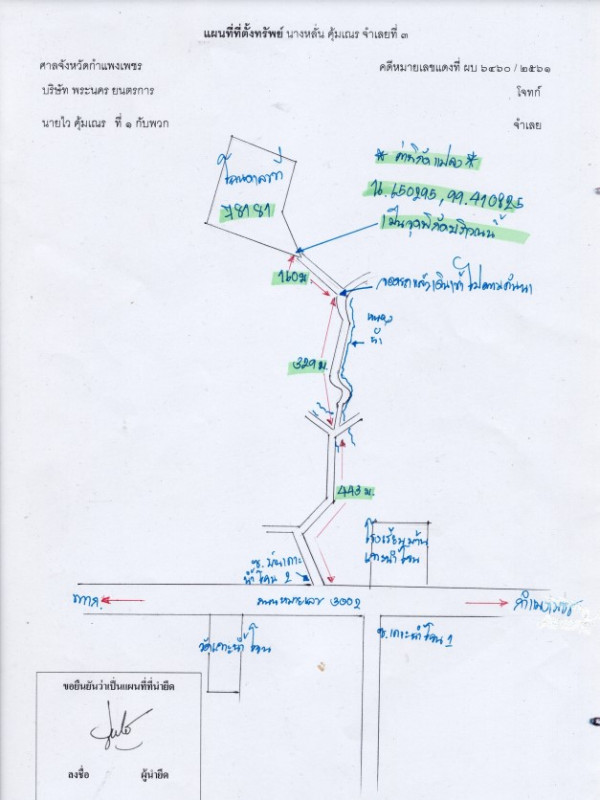 แผนที่ที่ตั้งทรัพย์ นางหลั่น คุ้มเณร จำเลยที่ ๓
ศาลจังหวัดกำแพงเพชร
คดีหมายเลขแดงที่ ผบ ๖๔๖๐ / ๒๕๖๑
บริษัท พระนคร ยนตรการ
โจทก์
นายไว คุ้มเณร ที่ ๑ กับพวก
จำเลย
* ค่าพิกัดแปลง *
16.650295, 99.410825
เป็นจุดพิกัดบริเวณนี้
โฉนดเลขที่
78181
160 ม.
จอดรถแล้วเดินเข้าไปตามคันนา
หนอง
น้ำ
329 ม.
443 ม.
โรงเรียนบ้าน
เกาะน้ำโจน
ซ. บ้านเกาะ
น้ำโจน 2
ตาก
ถนนหมายเลข 3002
กำแพงเพชร
วัดเกาะน้ำโจน
ซ. เกาะน้ำโจน 1
ขอยืนยันว่าเป็นแผนที่ที่นำยึด
ลงชื่อ ผู้นำยึด